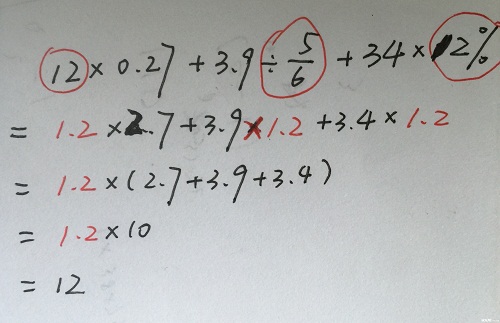 12 × 0.27 + 3.9 ÷ 5/6 + 34 × 12%
= 1.2 × 2.7 + 3.9 × 1.2 + 3.4 × 1.2
= 1.2 × (2.7 + 3.9 + 3.4)
= 1.2 × 10
= 12